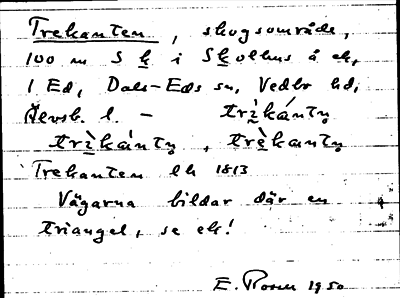 Trekanten, skogsområde,
100 m S k i Skolhus å ek,
1 Ed, Dals-Eds sn, Vedbo hd,
Älvsb. l. - trìkántn̥
trìkántn̥, trèkantn̥
Trekanten lk 1813
Vägarna bildar där en
triangel, se ek!
E. Rosén 1950